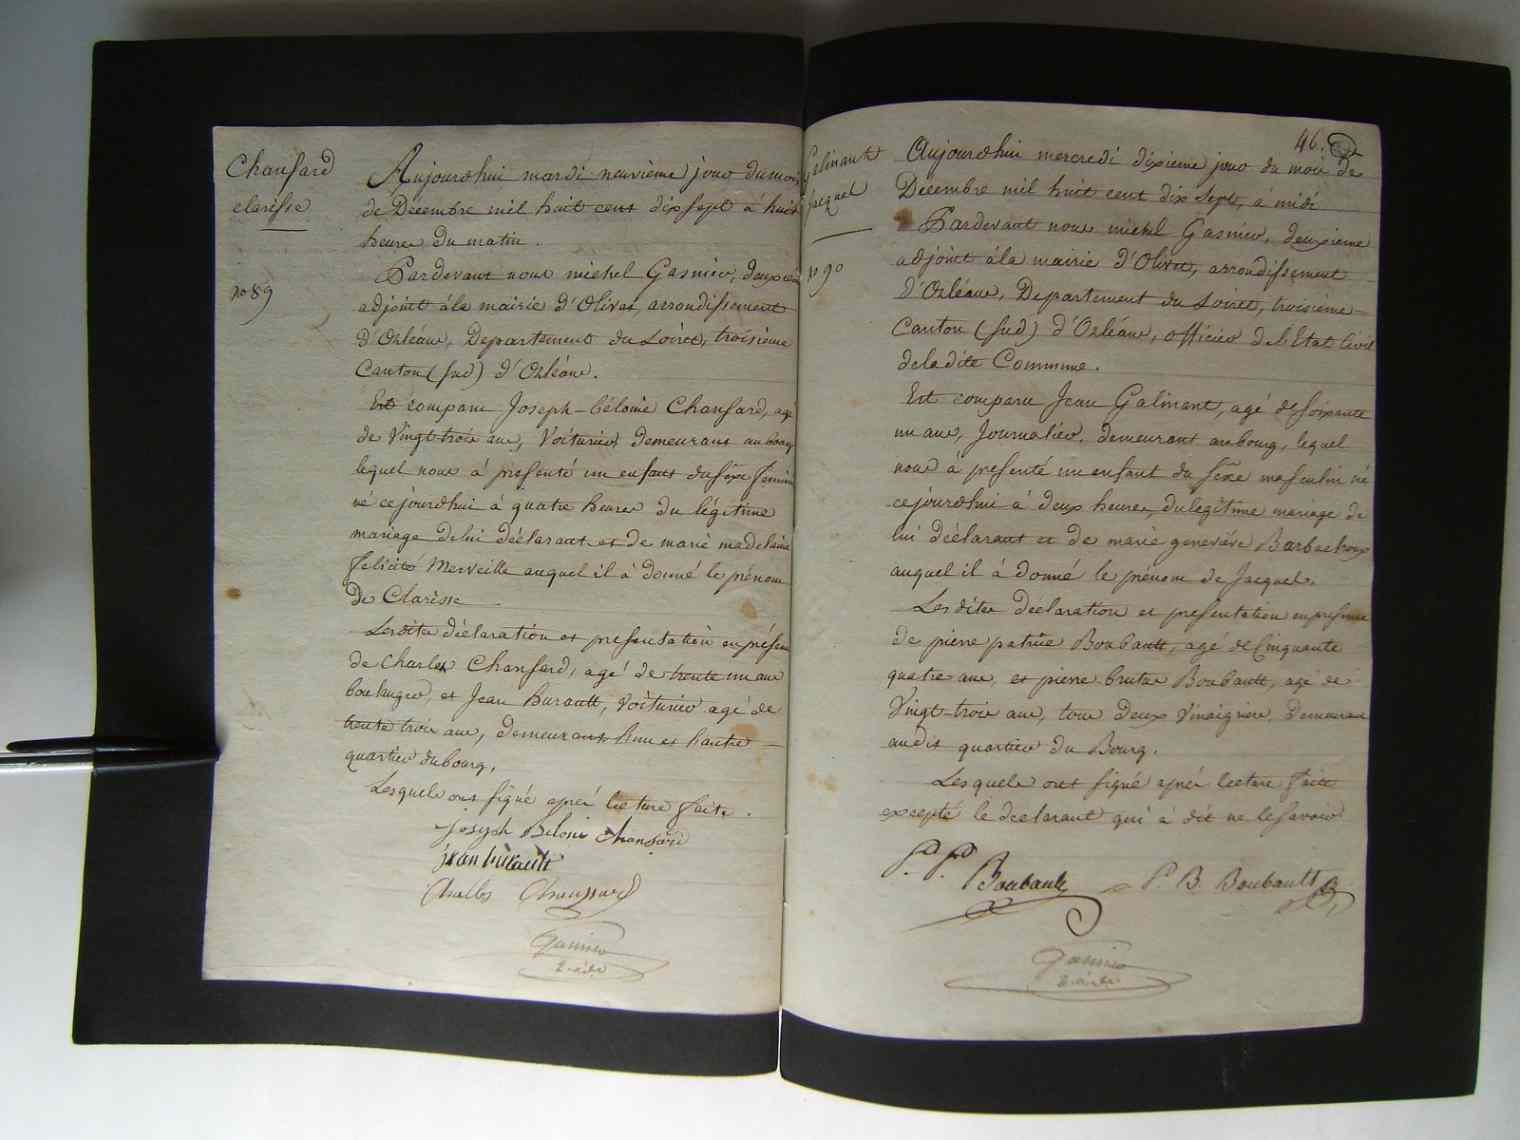 Chaufard
clarisse
no 89
Aujourdhui mardi neuvième jour du mois
de Decembre mil huit cent dix sept à huit
heures du matin.
Pardevant nous michel Gasnier, deuxième
adjoint à la mairie d'Olivet, arrondissement
d'Orléans, Departement du Loiret, troisième
Canton (sud) d'Orléans.
Est comparu Joseph-Céloine Chaufard, agé
de Vingt-trois ans, Voiturier demeurant au bourg
lequel nous à presenté un enfant du sexe féminin
né ce jourdhui à quatre heures du légitime
mariage de lui déclarant et de marie madelaine
felicité Merveille auquel il à donné le prénom
de Clarisse
Lesdites déclaration et presentation en présence
de Charles Chaufard, agé de trente un ans
boulanger, et Jean Hurault, Voiturier agé de
trente trois ans, demeurants l'un et l'autre
quartier du bourg,
Lesquels ont signé après lecture faite.
Joseph Chaufard
jean hurault
Charles Chaussard
Gasnier
46.
Galinant
Jacques
no 90
Aujourdhui mercredi dixieme jour du mois de
Decembre mil huit cent dix sept, à midi
Pardevant nous michel Gasnier, deuxieme
adjoint à la mairie d'Olivet, arrondissement
D'Orléans, Departement du Loiret, troisième
Canton (sud) d'Orléans, officier de l'Etat Civil
de la dite Commune.
Est comparu Jean Galinant, agé de soixante
un ans, Journalier, demeurant au bourg, lequel
nous à presenté un enfant du sexe masculin né
cejourdhui à deux heures, du légitime mariage de
lui déclarant et de marie geneviève Barbechoux
auquel il à donné le prénom de Jacques.
Lesdites déclaration et presentation en presence
de pierre patrice Boubault, agé de Cinquante
quatre ans, et pierre Boubault, agé de
Vingt-trois ans, tous deux Vinaigriers, Demeurant
audit quartier du Bourg.
Lesquels ont signé après lecture faite
excepté le declarant qui à dit ne le savoir
P. P. Boubault P. B. Boubault
Gasnier